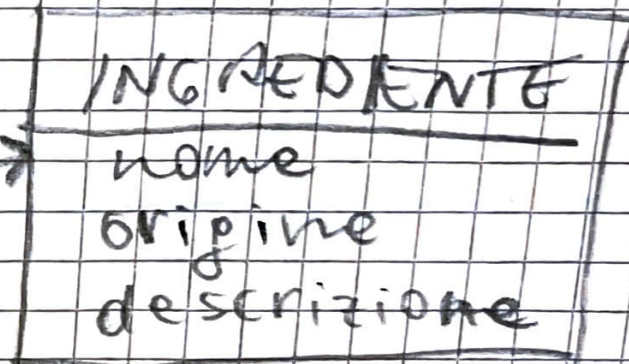 INGREDIENTE
nome
origine
descrizione